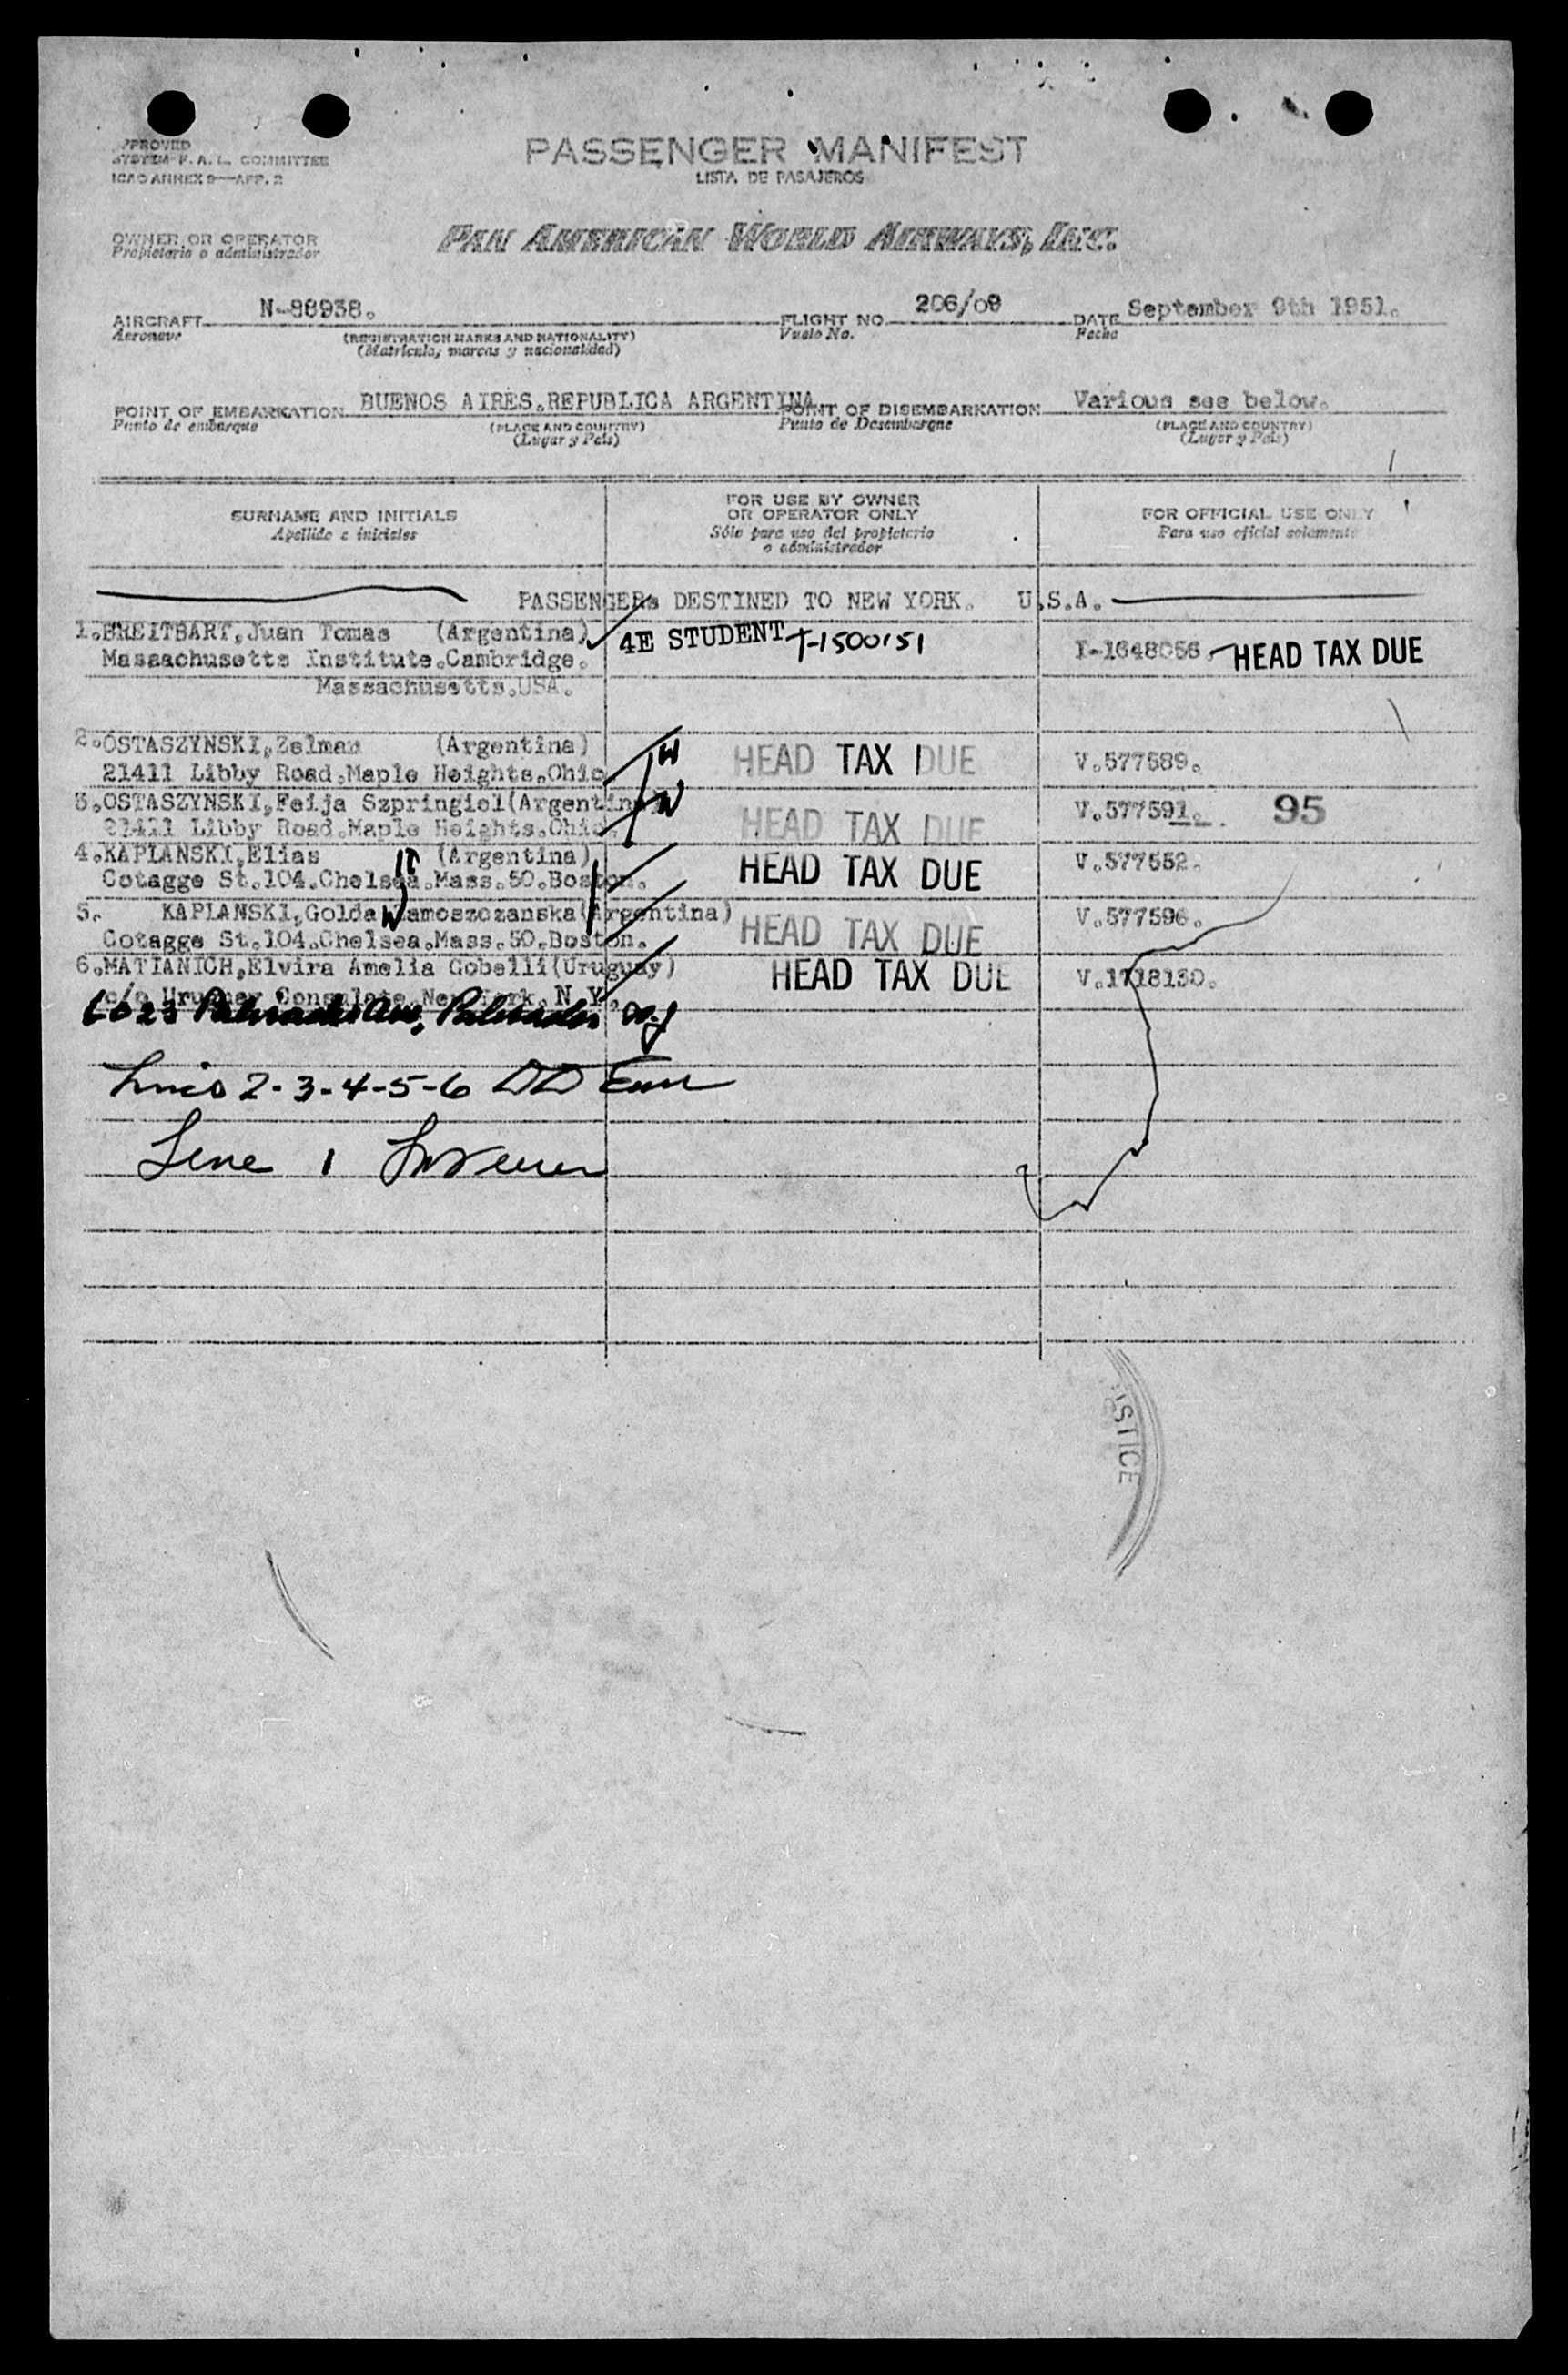 APPROVED
SYSTEM F. A. L. COMMITTEE
ICAO ANNEX 9—APP. 2
PASSENGER MANIFEST
LISTA DE PASAJEROS
OWNER OR OPERATOR
Propietario o administrador
PAN AMERICAN WORLD AIRWAYS, INC.
AIRCRAFT N-88938.
Aeronave
(REGISTRATION MARKS AND NATIONALITY)
(Matricula, marcas y nacionalidad)
FLIGHT NO. 206/08
Vuelo No.
DATE September 9th 1951.
Fecha
POINT OF EMBARKATION BUENOS AIRES.REPUBLICA ARGENTINA
Punto de embarque
(PLACE AND COUNTRY)
(Lugar y País)
POINT OF DISEMBARKATION Various see below.
Punto de Desembarque
(PLACE AND COUNTRY)
(Lugar y País)
SURNAME AND INITIALS
Apellido e iniciales
FOR USE BY OWNER
OR OPERATOR ONLY
Sólo para uso del propietario
o administrador
FOR OFFICIAL USE ONLY
Para uso oficial solamente
PASSENGERs DESTINED TO NEW YORK. U.S.A.
1.BREITBART,Juan Tomas (Argentina) 4E STUDENT T-1500151
Massachusetts Institute.Cambridge. I-1648056. HEAD TAX DUE
Massachusetts.USA.
2.OSTASZYNSKI,Zelman (Argentina) W HEAD TAX DUE V.577589.
21411 Libby Road.Maple Heights.Ohio
3.OSTASZYNSKI,Feija Szpringiel(Argentina) W HEAD TAX DUE V.577591. 95
21411 Libby Road.Maple Heights.Ohio
4.KAPLANSKI,Elias (Argentina) HEAD TAX DUE V.577552.
Cotagge St.104.Chelsea.Mass.50.Boston.
5. KAPLANSKI,Golda Zamoszczanska(Argentina) W HEAD TAX DUE V.577596.
Cotagge St.104.Chelsea.Mass.50.Boston.
6.MATIANICH,Elvira Amelia Gobelli(Uruguay) HEAD TAX DUE V.1718130.
c/o Uruguay Consulate.New York. N.Y.
6023 Palisades Ave, Palisades NJ
2-3-4-5-6
Line 1
STICE